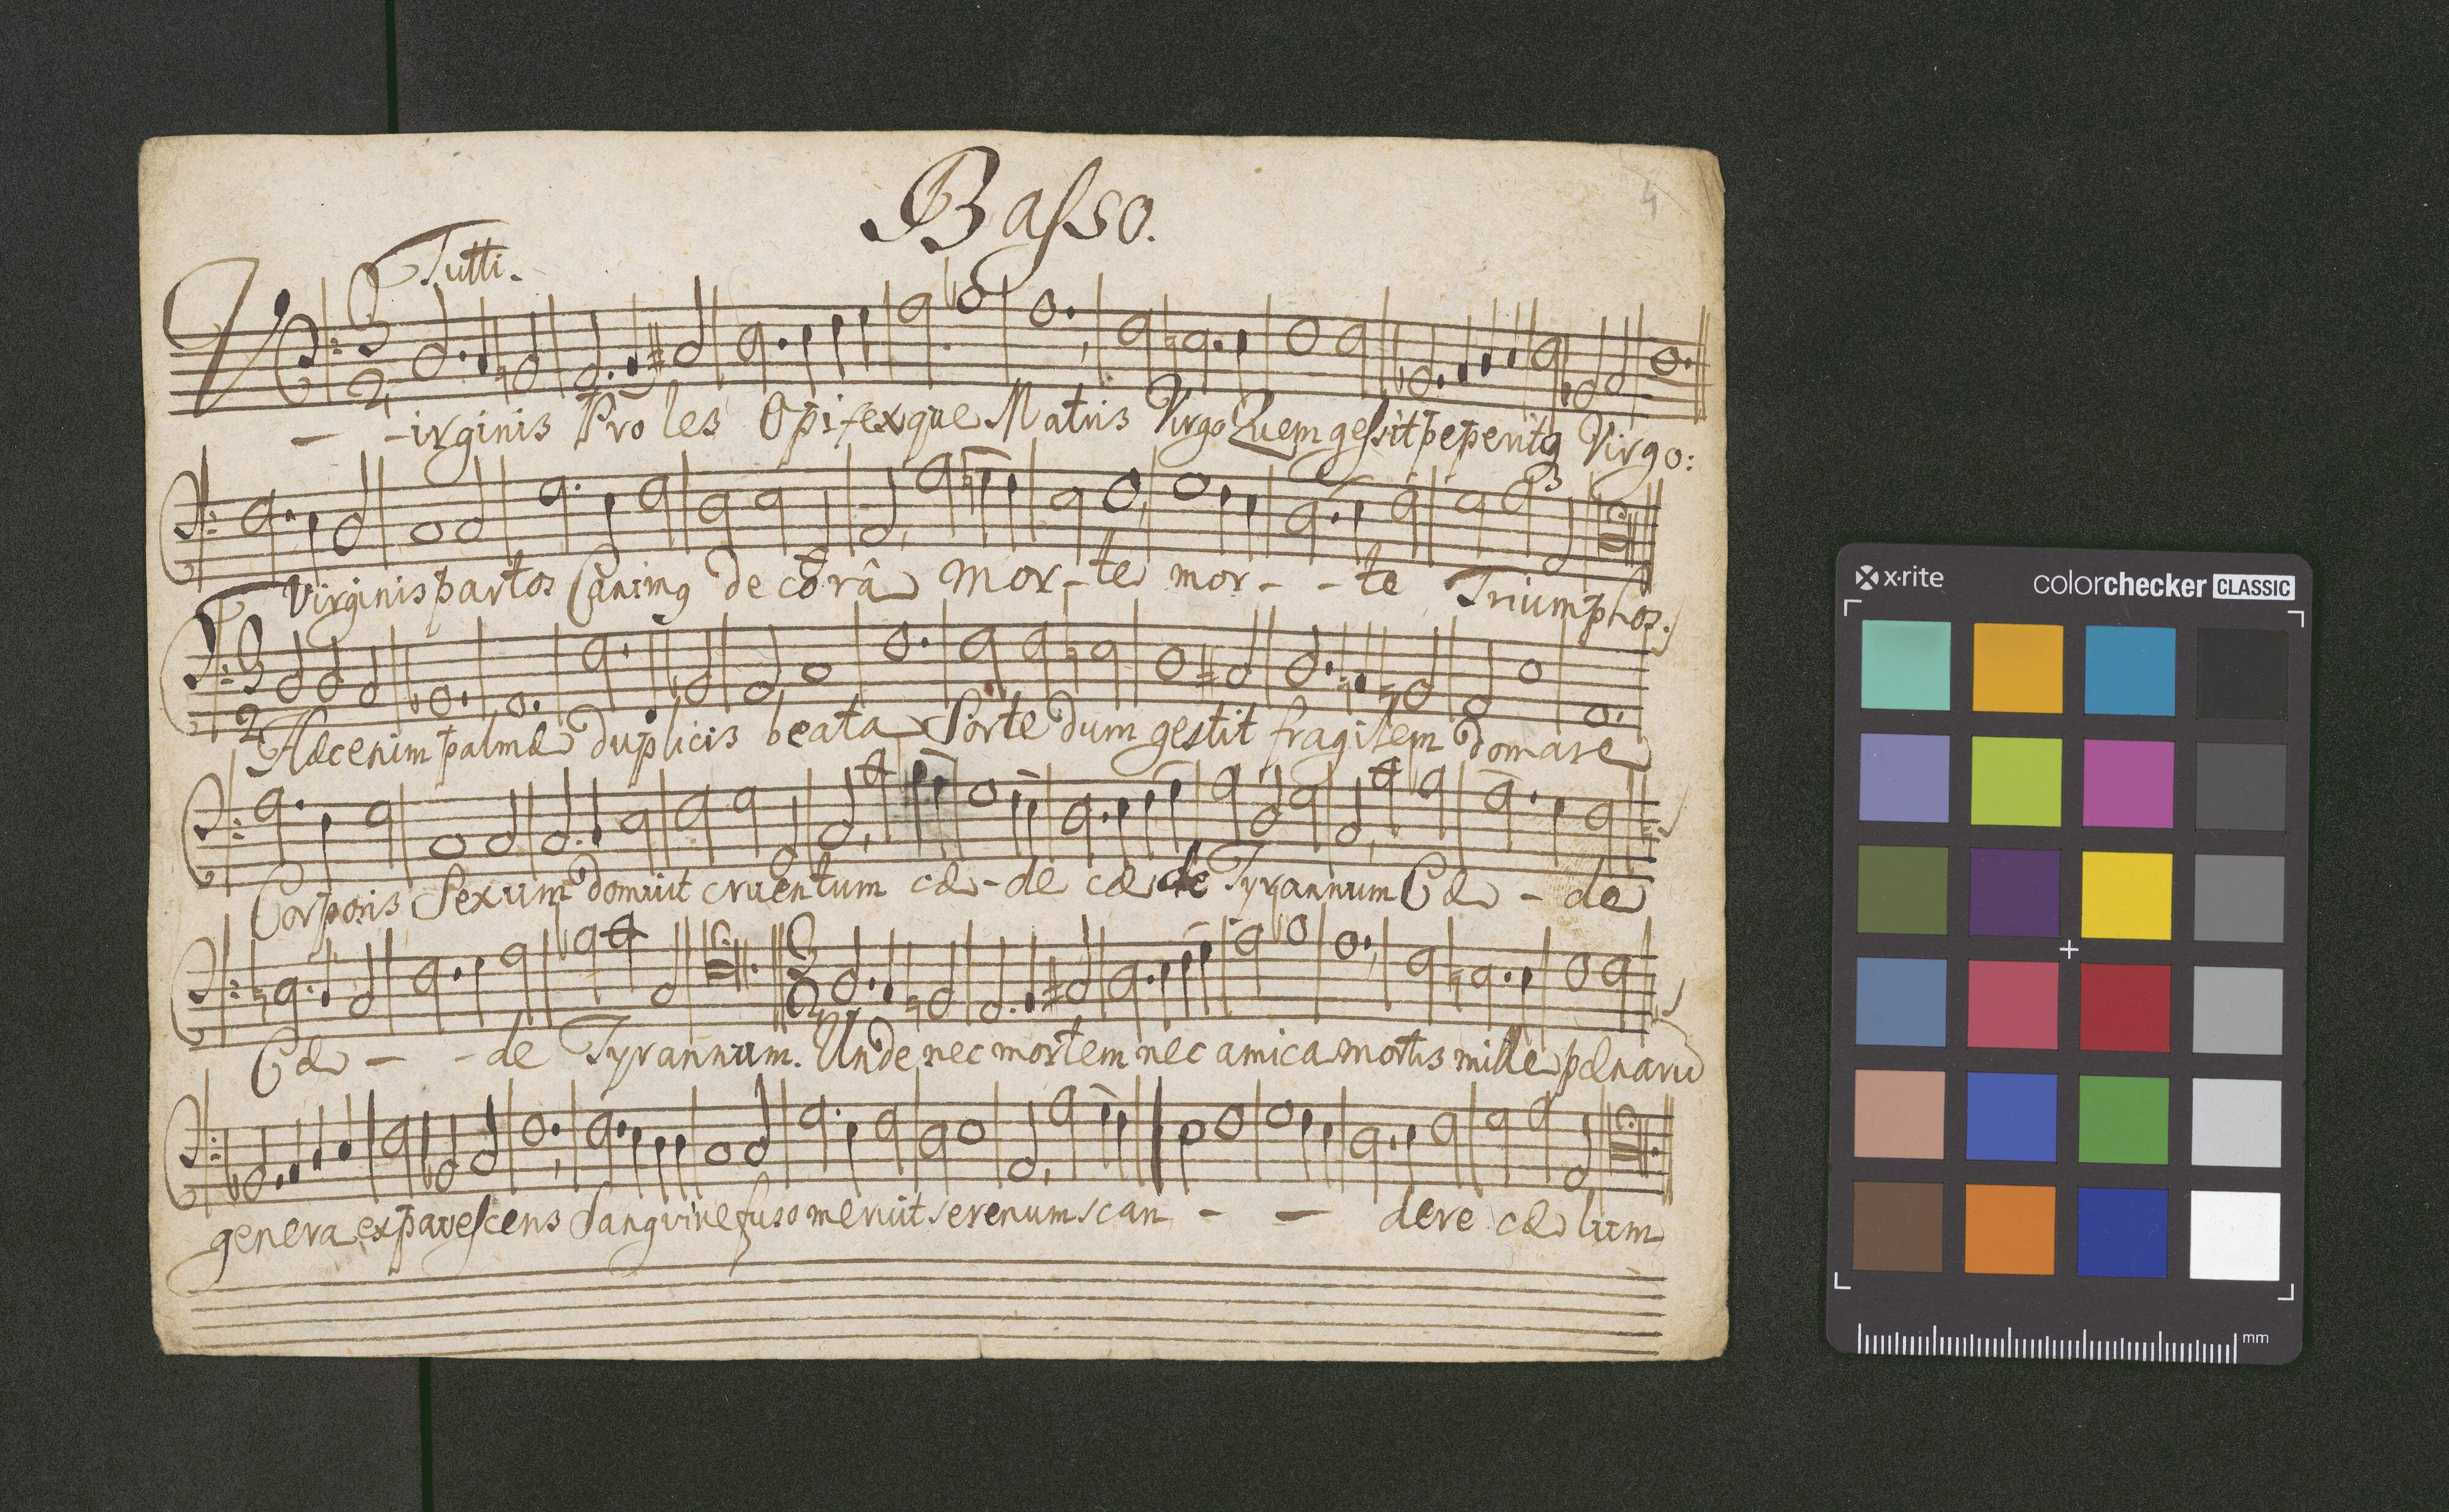 Basso.
4
Tutti.
Virginis Proles Opifexque Matris Virgo Quem gessit peperitq Virgo:
Virginis partos Canimq decorâ mor-te mor - - te Triumphos.
3
Hæc enim palmæ duplicis beata Sorte dum gestit fragilem domare
Corporis Sexum domuit cruentum cæ-de cæde Tyrannum Cæ - de
Cæ - - de Tyrannum. Unde nec mortem nec amica mortis mille pænarū
genera expavescens Sanguine fuso meruit serenum scan - - dere cælum
x·rite
colorchecker CLASSIC
mm